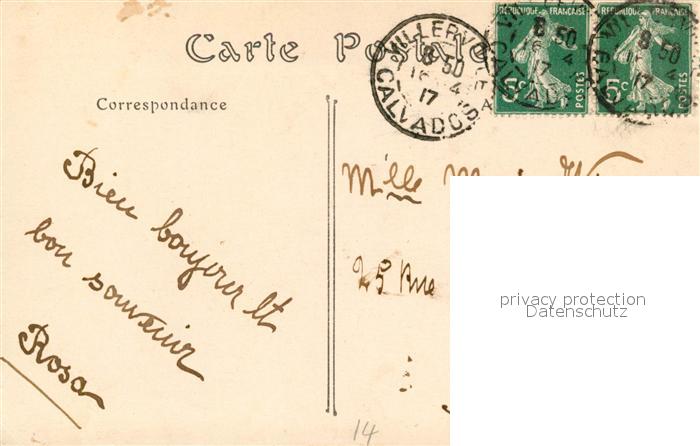 Carte Postale
Correspondance
Bien boujour et
bon souvenir
Rosa
VILLERVILLE
8 50
16 4
17
CALVADOS
REPUBLIQUE FRANÇAISE
5c
POSTES
REPUBLIQUE FRANÇAISE
5c
POSTES
Mlle
25 Rue
privacy protection
Datenschutz
14